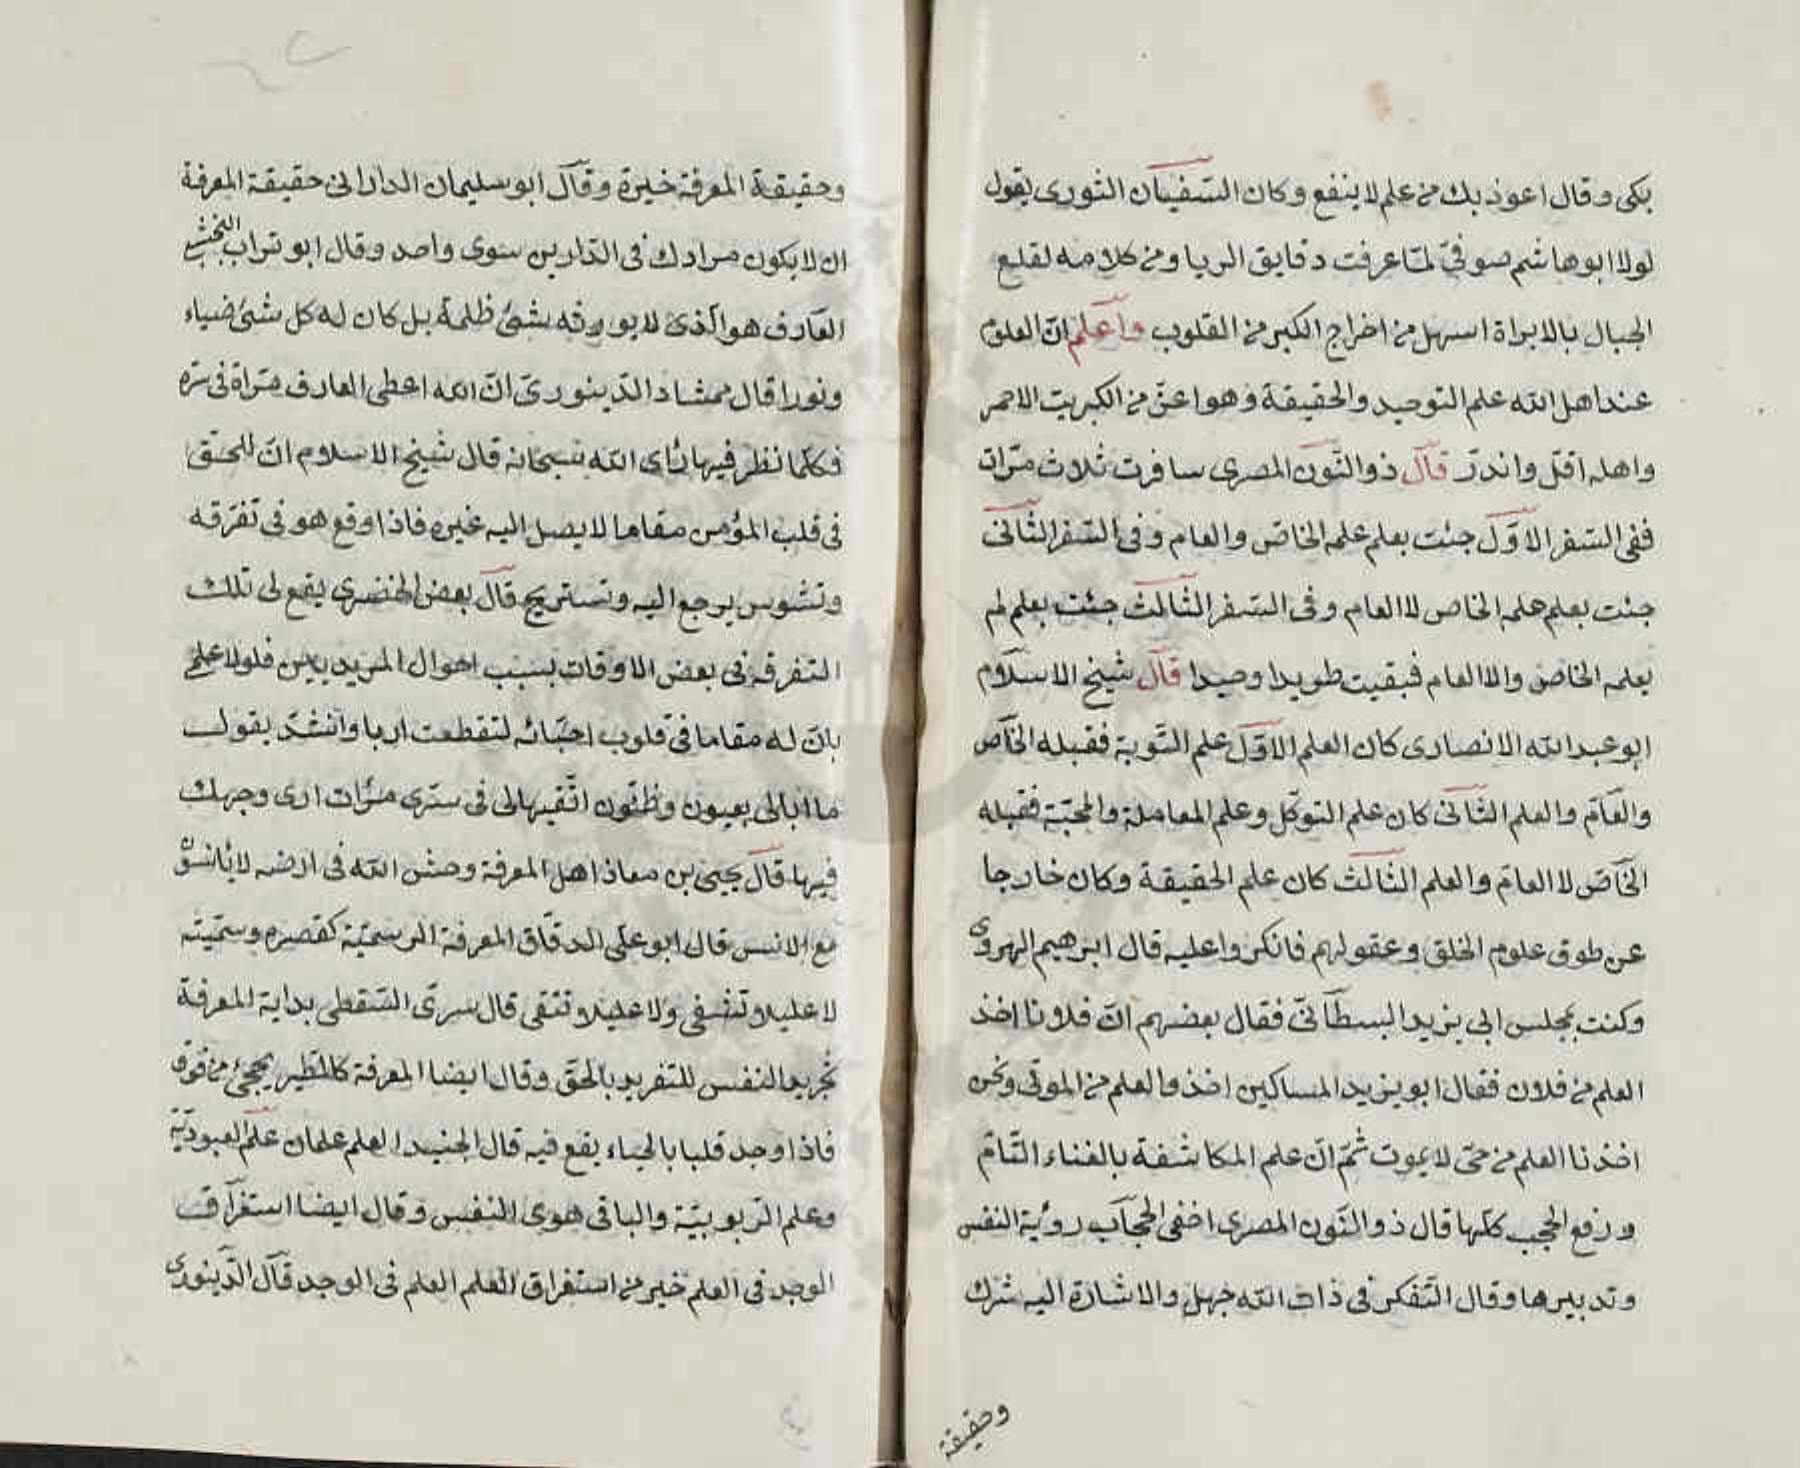 بكى وقال اعوذ بك من علم لا ينفع وكان السّفيان الثورى يقول
لولا ابو هاشم صوفىّ لمّا عرفت دقايق الريا ومن كلامه لقلع
الجبال بالابراة اسهل من اخراج الكبر من القلوب واعلم انّ العلوم
عند اهل الله علم التوحيد والحقيقة وهو اعزّ من الكبريت الاحمر
واهله اقلّ واندرّ قال ذو النّون المصرى سافرت ثلاث مرّات
ففى السّفر الاوّل جئت بعلم علمه الخاصّ والعام وفى السّفر الثّانى
جئت بعلم علمه الخاص لا العام وفى السّفر الثّالث جئت بعلم لم
يعلمه الخاصّ والا العام فبقيت طويدا وحيدا قال شيخ الاسلام
ابو عبد الله الانصارى كان العلم الاوّل علم التّوبة فقبله الخاّص
والعاّم والعلم الثّانى كان علم التوكّل وعلم المعاملة والمحبّة فقبله
الخاّص لا العامّ والعلم الثّالث كان علم الحقيقة وكان خارجا
عن طوق علوم الخلق وعقولهم فانكروا عليه قال ابرهيم الهروى
وكنت بمجلس ابى يزيد البسطانىّ فقال بعضهم انّ فلونا اخذ
العلم من فلان فقال ابو يزيد المساكين اخذوا العلم من الموتى ونحن
اخذنا العلم من حىّ لا يموت ثمّ انّ علم المكاشفة بالفناء التّامّ
ورفع الحجب كلّها قال ذو النّون المصرى اخفى الحجاب رؤية النفس
وتدبيرها وقال التّفكر فى ذات الله جهل والاشارة اليه شرك
وحقيقة
وحقيقة المعرفة خيرة وقال ابو سليمان الدارانى حقيقة المعرفة
ان لا يكون مرادك فى الدّارين سوى واحد وقال ابو تراب النخشبى
العارف هو الّذى لا يورثه شئ ظلمة بل كان له كل شئ ضياء
ونورا قال ممشاد الدّينورىّ انّ الله اعطى العارف مراة فى سرّه
فكلّما نظر فيها رأى الله سبحانه قال شيخ الاسلام انّ للحقّ
فى قلب المؤمن مقاما لا يصل اليه غيره فاذا وقع هو فى تفرّقه
وتشوس يرجع اليه وتستريح قال بعض الحضرى يقع لى تلك
التفرقه فى بعض الاوقات بسبب احوال المريدين فلولا علمى
بانّ له مقاما فى قلوب احبّائه لتقطعت اربا وانشد يقول
ما ابالى بعيون وظنّون اتّقيها لى فى سرّى مرات ارى وجهك
فيها قال يحيى بن معاذ اهل المعرفة وحش الله فى ارضه لا يأنسوّن
مع الانس قال ابو علىّ الدقّاق المعرفة الرسميّة كقصره وسمّيته
لا عليلا تشفى ولا غليلا تنقى قال سرىّ السّقطى بداية المعرفة
تجريد النفس للتفريد بالحقّ وقال ايضا المعرفة كالطّير يجئ من فوق
فاذا وجد قلبا بالحياء يقع فيه قال الجنيد العلم علمان علم العبوديّة
وعلم الرّبوبيّة والباقى هوى النفس وقال ايضا استغراق
الوجد فى العلم خير من استغراق العلم العلم فى الوجد قال الدّينورى